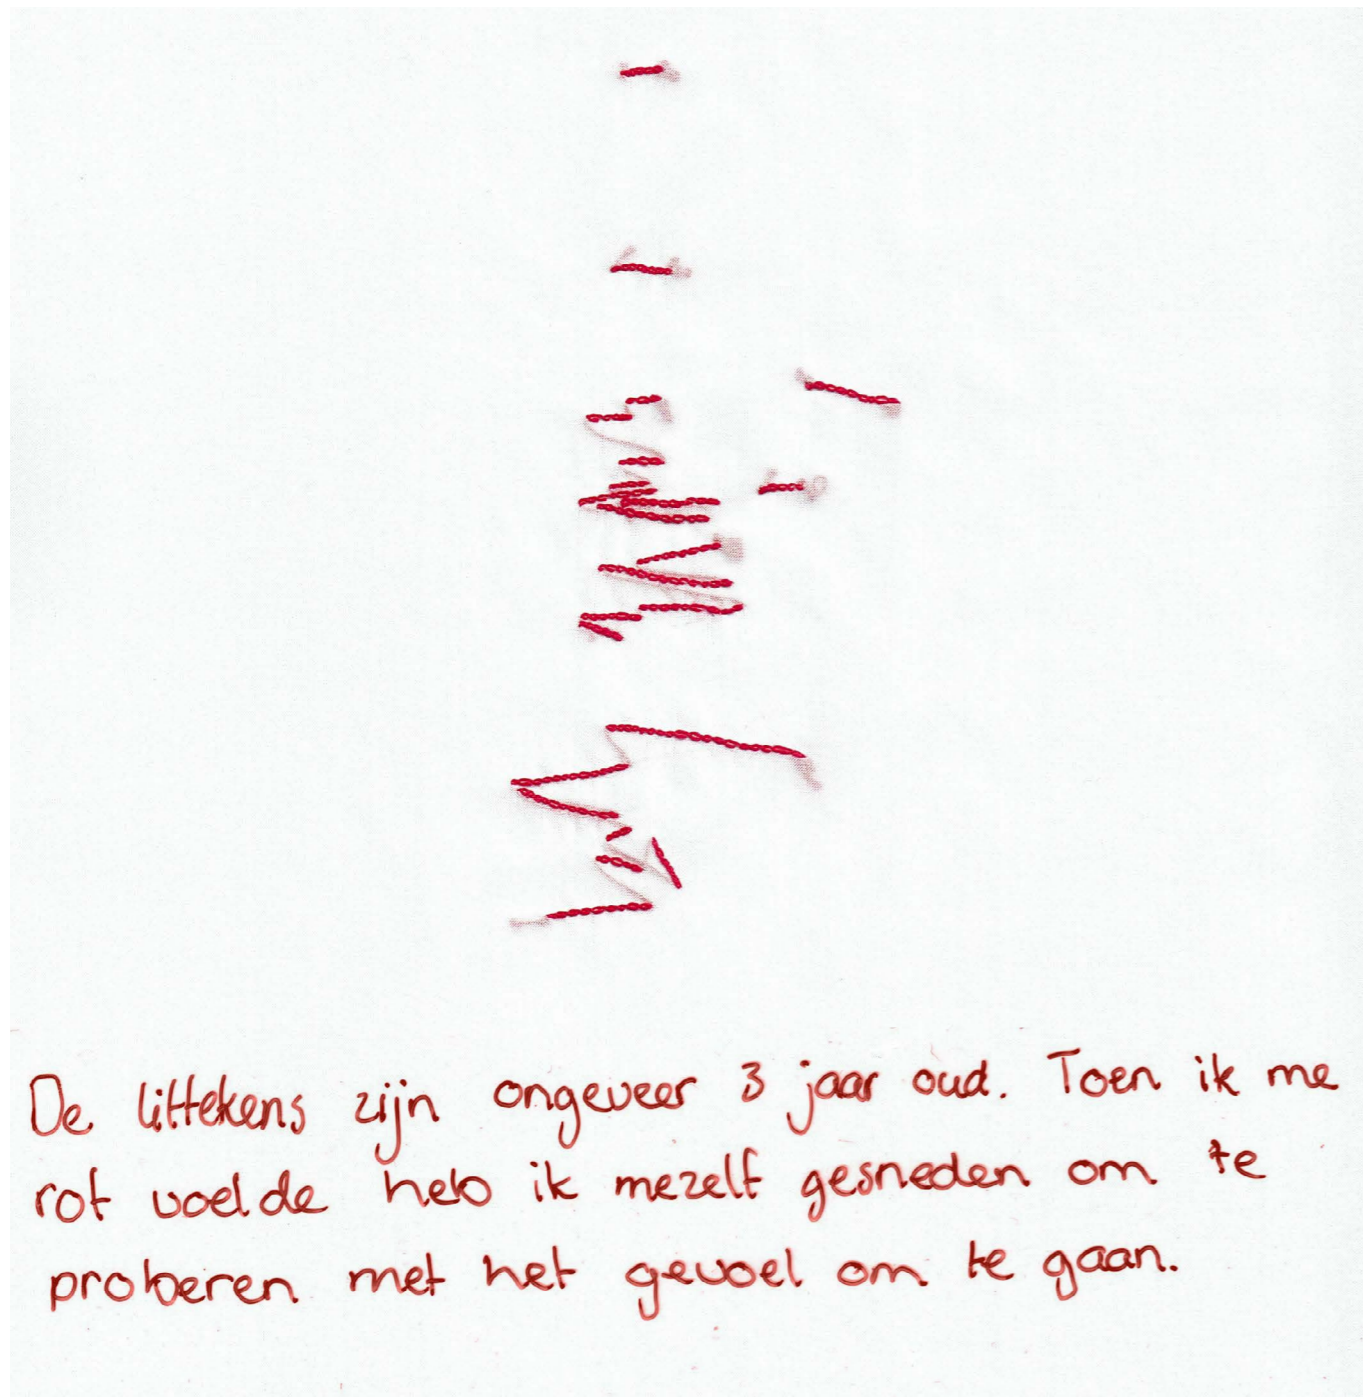 De littekens zijn ongeveer 3 jaar oud. Toen ik me
rot voelde heb ik mezelf gesneden om te
proberen met het gevoel om te gaan.